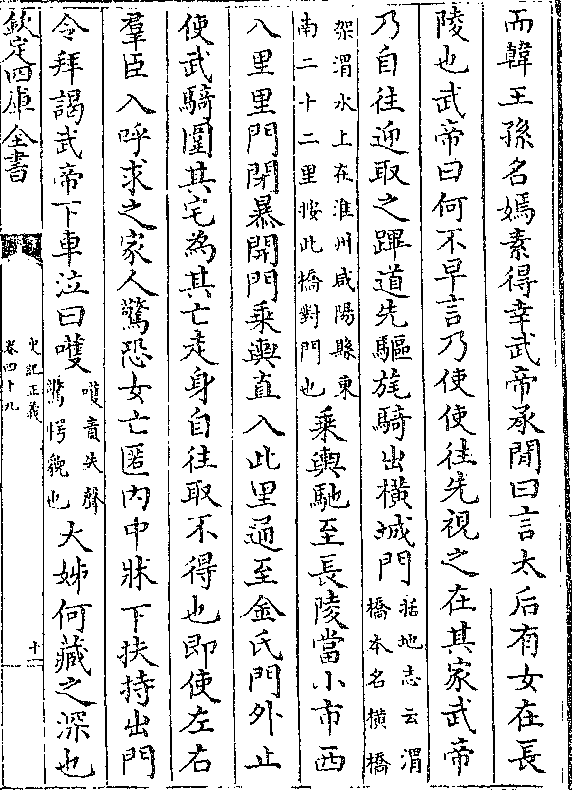 而韓王孫名嫣素得幸武帝承閒曰言太后有女在長
陵也武帝曰何不早言乃使使往先視之在其家武帝
乃自往迎取之蹕道先驅旄騎出橫城門
括地志云渭
橋本名橫橋
架渭水上在淮州咸陽縣東
南二十二里按此橋對門也
乘輿馳至長陵當小市西
入里里門閉暴開門乘輿直入此里通至金氏門外止
使武騎圍其宅為其亡走身自往取不得也即使左右
羣臣入呼求之家人驚恐女亡匿内中牀下扶持出門
令拜謁武帝下車泣曰嚄
嚄責失聲
驚愕貌也
大姊何藏之深也
欽定四庫全書
史記正義
卷四十九
十二